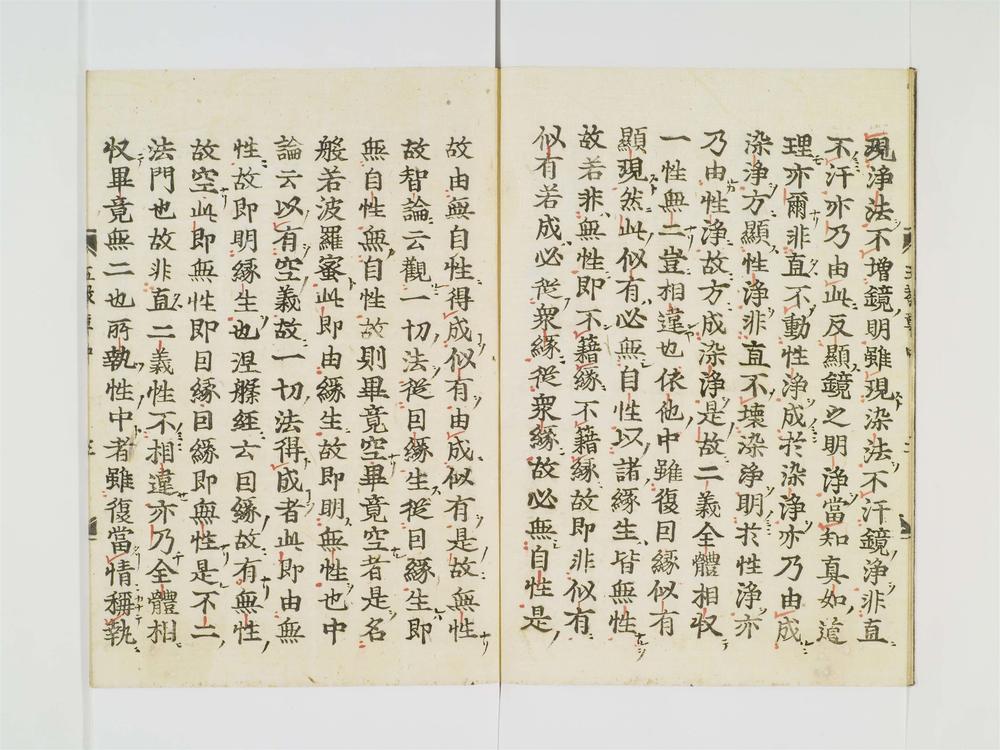 現浄法不増鏡明雖現染法不汗鏡浄非直
不汗亦乃由此反顯鏡之明浄當知真如道
理亦爾非直不動性浄成於染浄亦乃由成
染浄方顯性浄非直不壊染浄明於性浄亦
乃由性浄故方成染浄是故二義全體相収
一性無二豈相違也依他中雖復因縁似有
顯現然此似有必無自性以諸縁生皆無性
故若非無性即不藉縁不藉縁故即非似有
似有若成必從衆縁從衆縁故必無自性是
故由無自性得成似有由成似有是故無性
故智論云觀一切法從因縁生從因縁生即
無自性無自性故則畢竟空畢竟空者是名
般若波羅蜜此即由縁生故即明無性也中
論云以有空義故一切法得成者此即由無
性故即明縁生也涅槃経云因縁故有無性
故空此即無性即因縁因縁即無性是不二
法門也故非直二義性不相違亦乃全體相
収畢竟無二也所執性中者雖復當情稱執